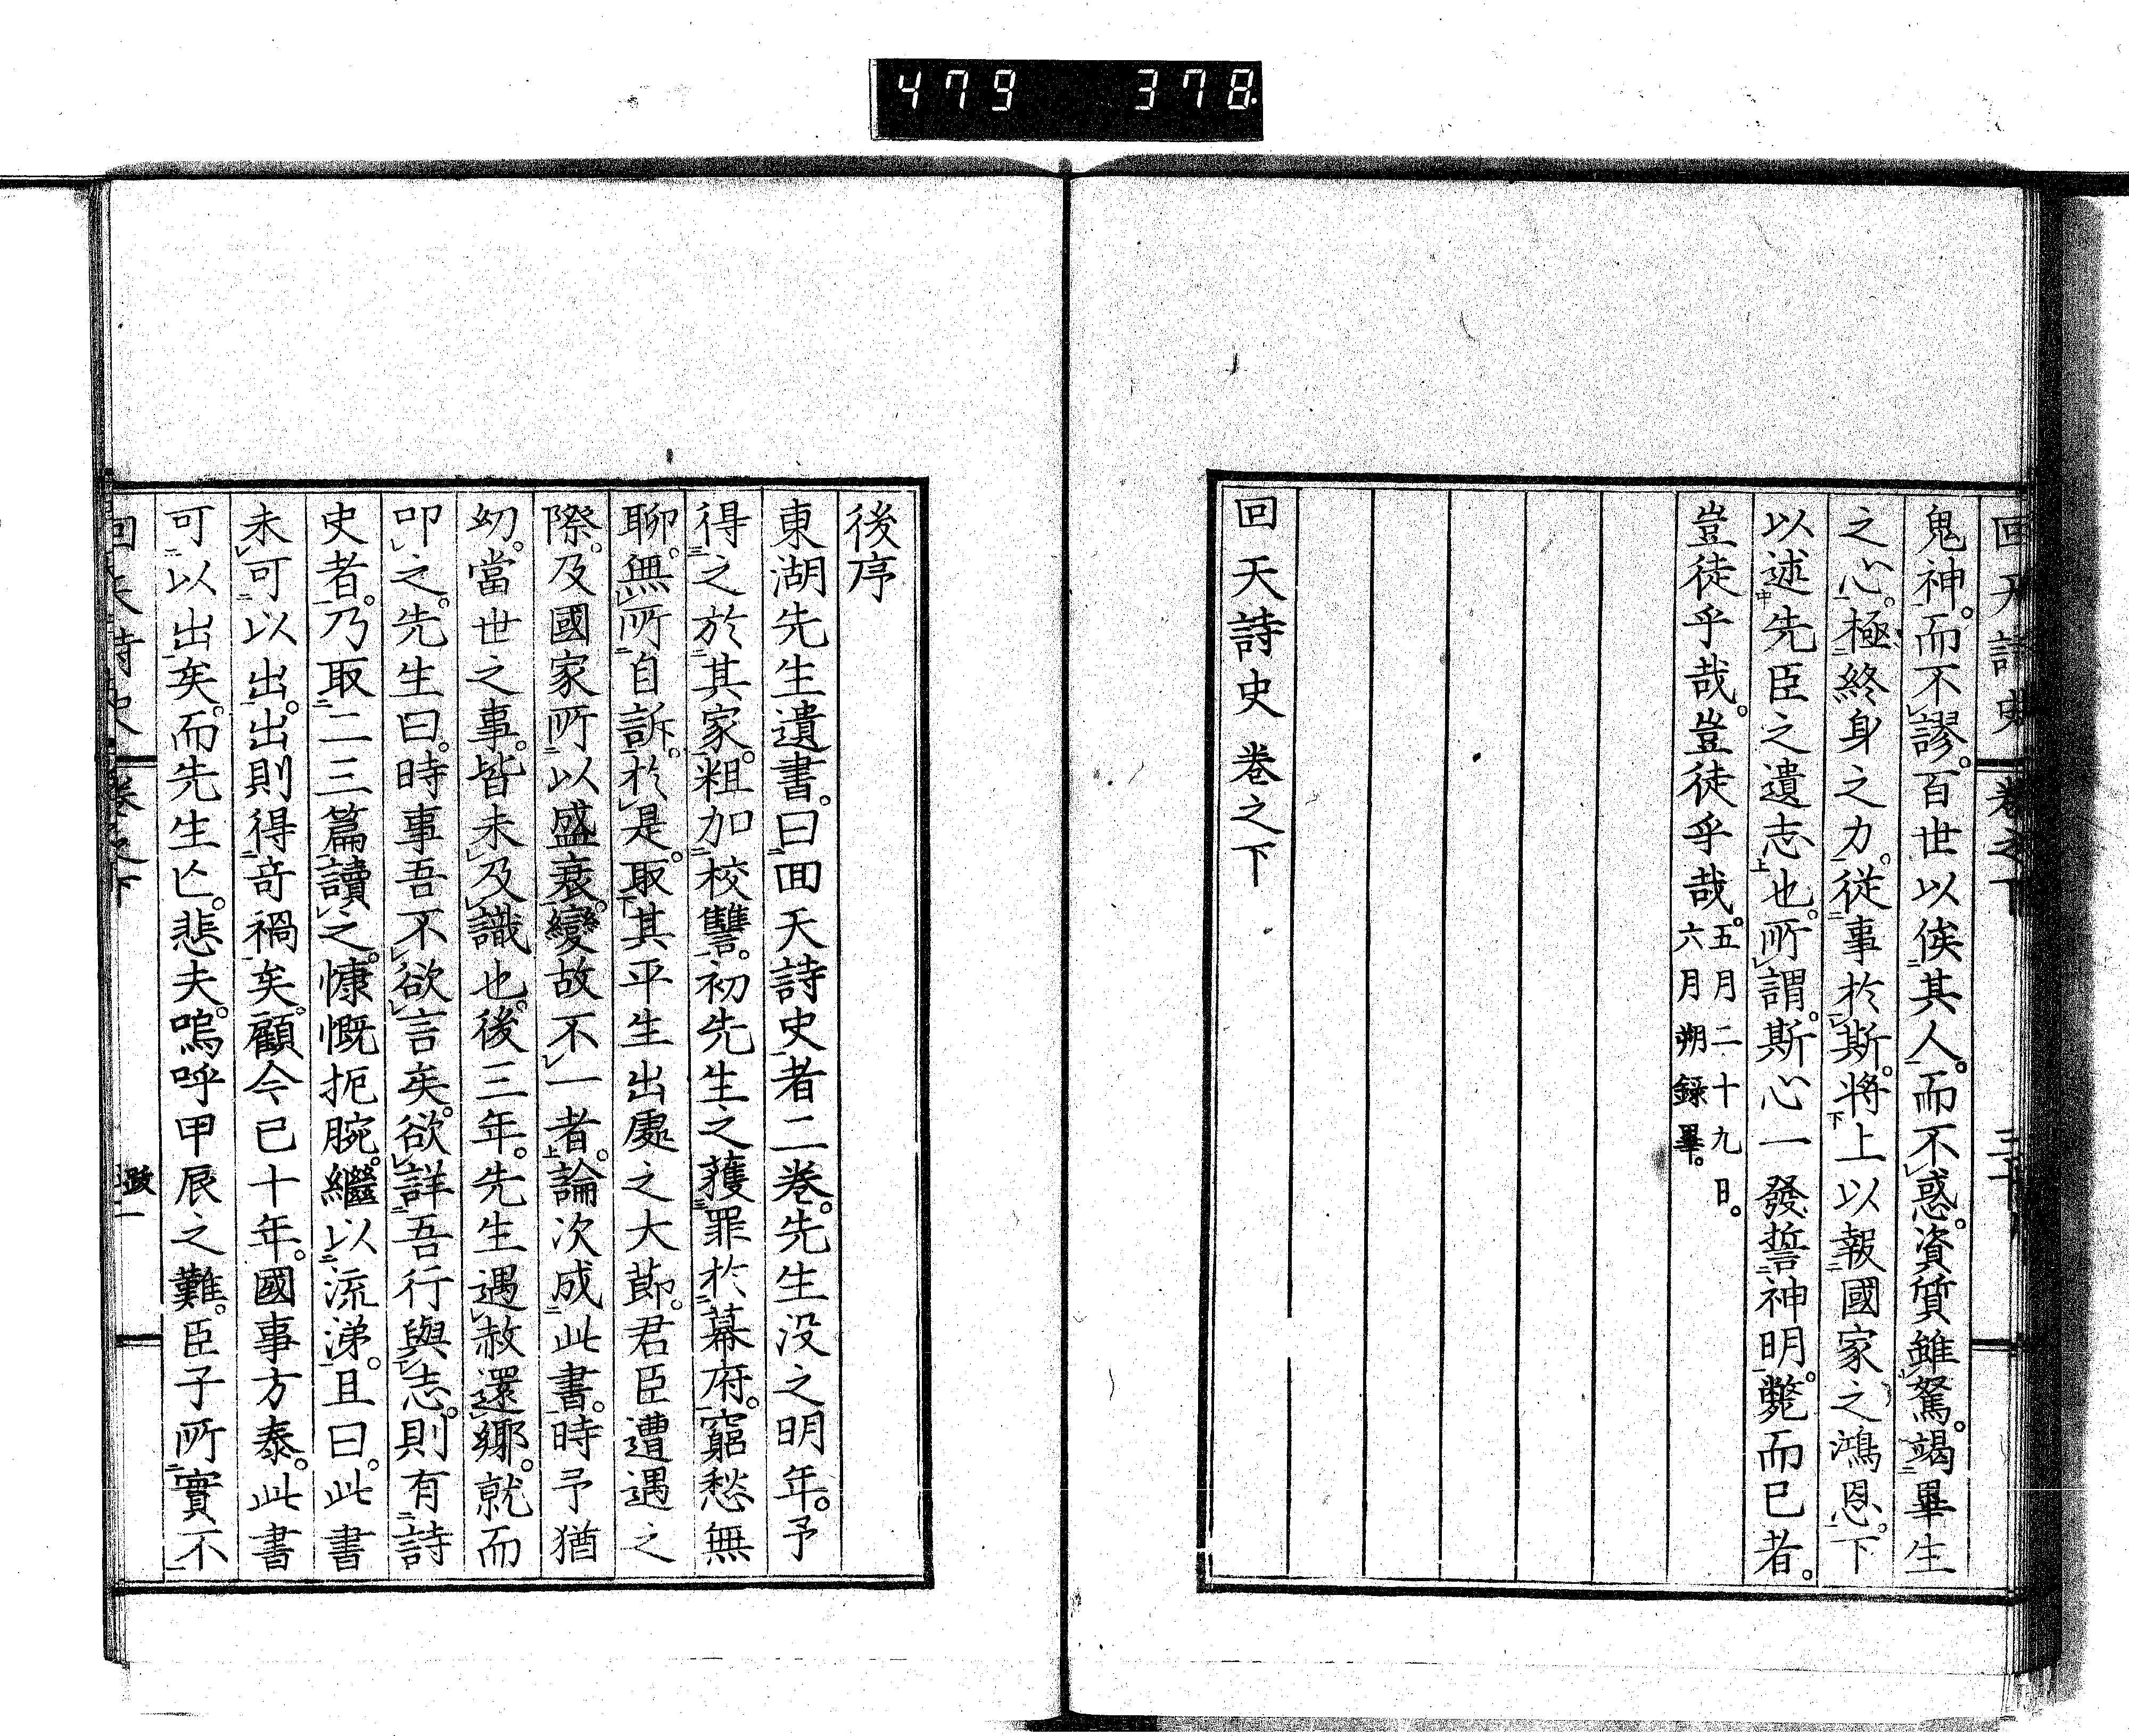 479 378
回天詩史 卷之下 三十
鬼神。而不謬。百世以俟其人。而不惑。資質雖駑。竭畢生
之心。極終身之力。從事於斯。將上以報國家之鴻恩。下
以述先臣之遺志也。所謂。斯心一發誓神明。斃而已者。
豈徒乎哉。豈徒乎哉。五月二十九日。
六月朔錄畢。
回天詩史 卷之下
後序
東湖先生遺書。曰回天詩史者二卷。先生沒之明年。予
得之於其家。粗加校讐。初先生之獲罪於幕府。窮愁無
聊。無所自訴。於是。取其平生出處之大節。君臣遭遇之
際。及國家所以盛衰。變故不一者。論次成此書。時予猶
幼。當世之事。皆未及識也。後三年。先生遇赦還鄉。就而
叩之。先生曰。時事吾不欲言矣。欲詳吾行與志。則有詩
史者。乃取二三篇讀之。慷慨扼腕。繼以流涕。且曰。此書
未可以出。出則得奇禍矣。顧今已十年。國事方泰。此書
可以出矣。而先生亡。悲夫。嗚呼甲辰之難。臣子所實不
回天詩史 卷之下 跋 一